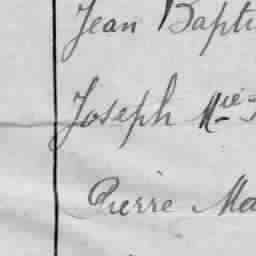 Jean Bapti
Joseph Mie
Pierre Ma